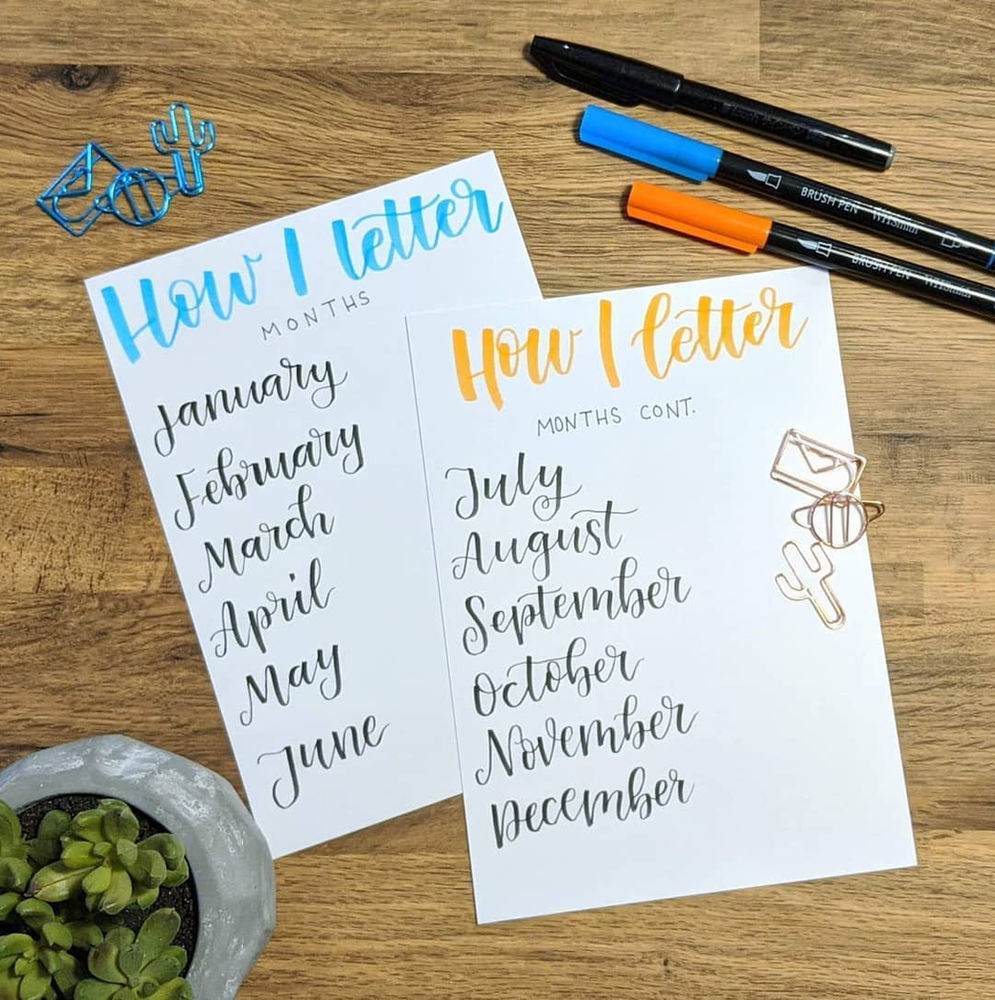 How I letter
MONTHS
January
February
March
April
May
June
How I letter
MONTHS CONT.
July
August
September
October
November
December
BRUSH PEN WHSmith
BRUSH PEN WHSmith